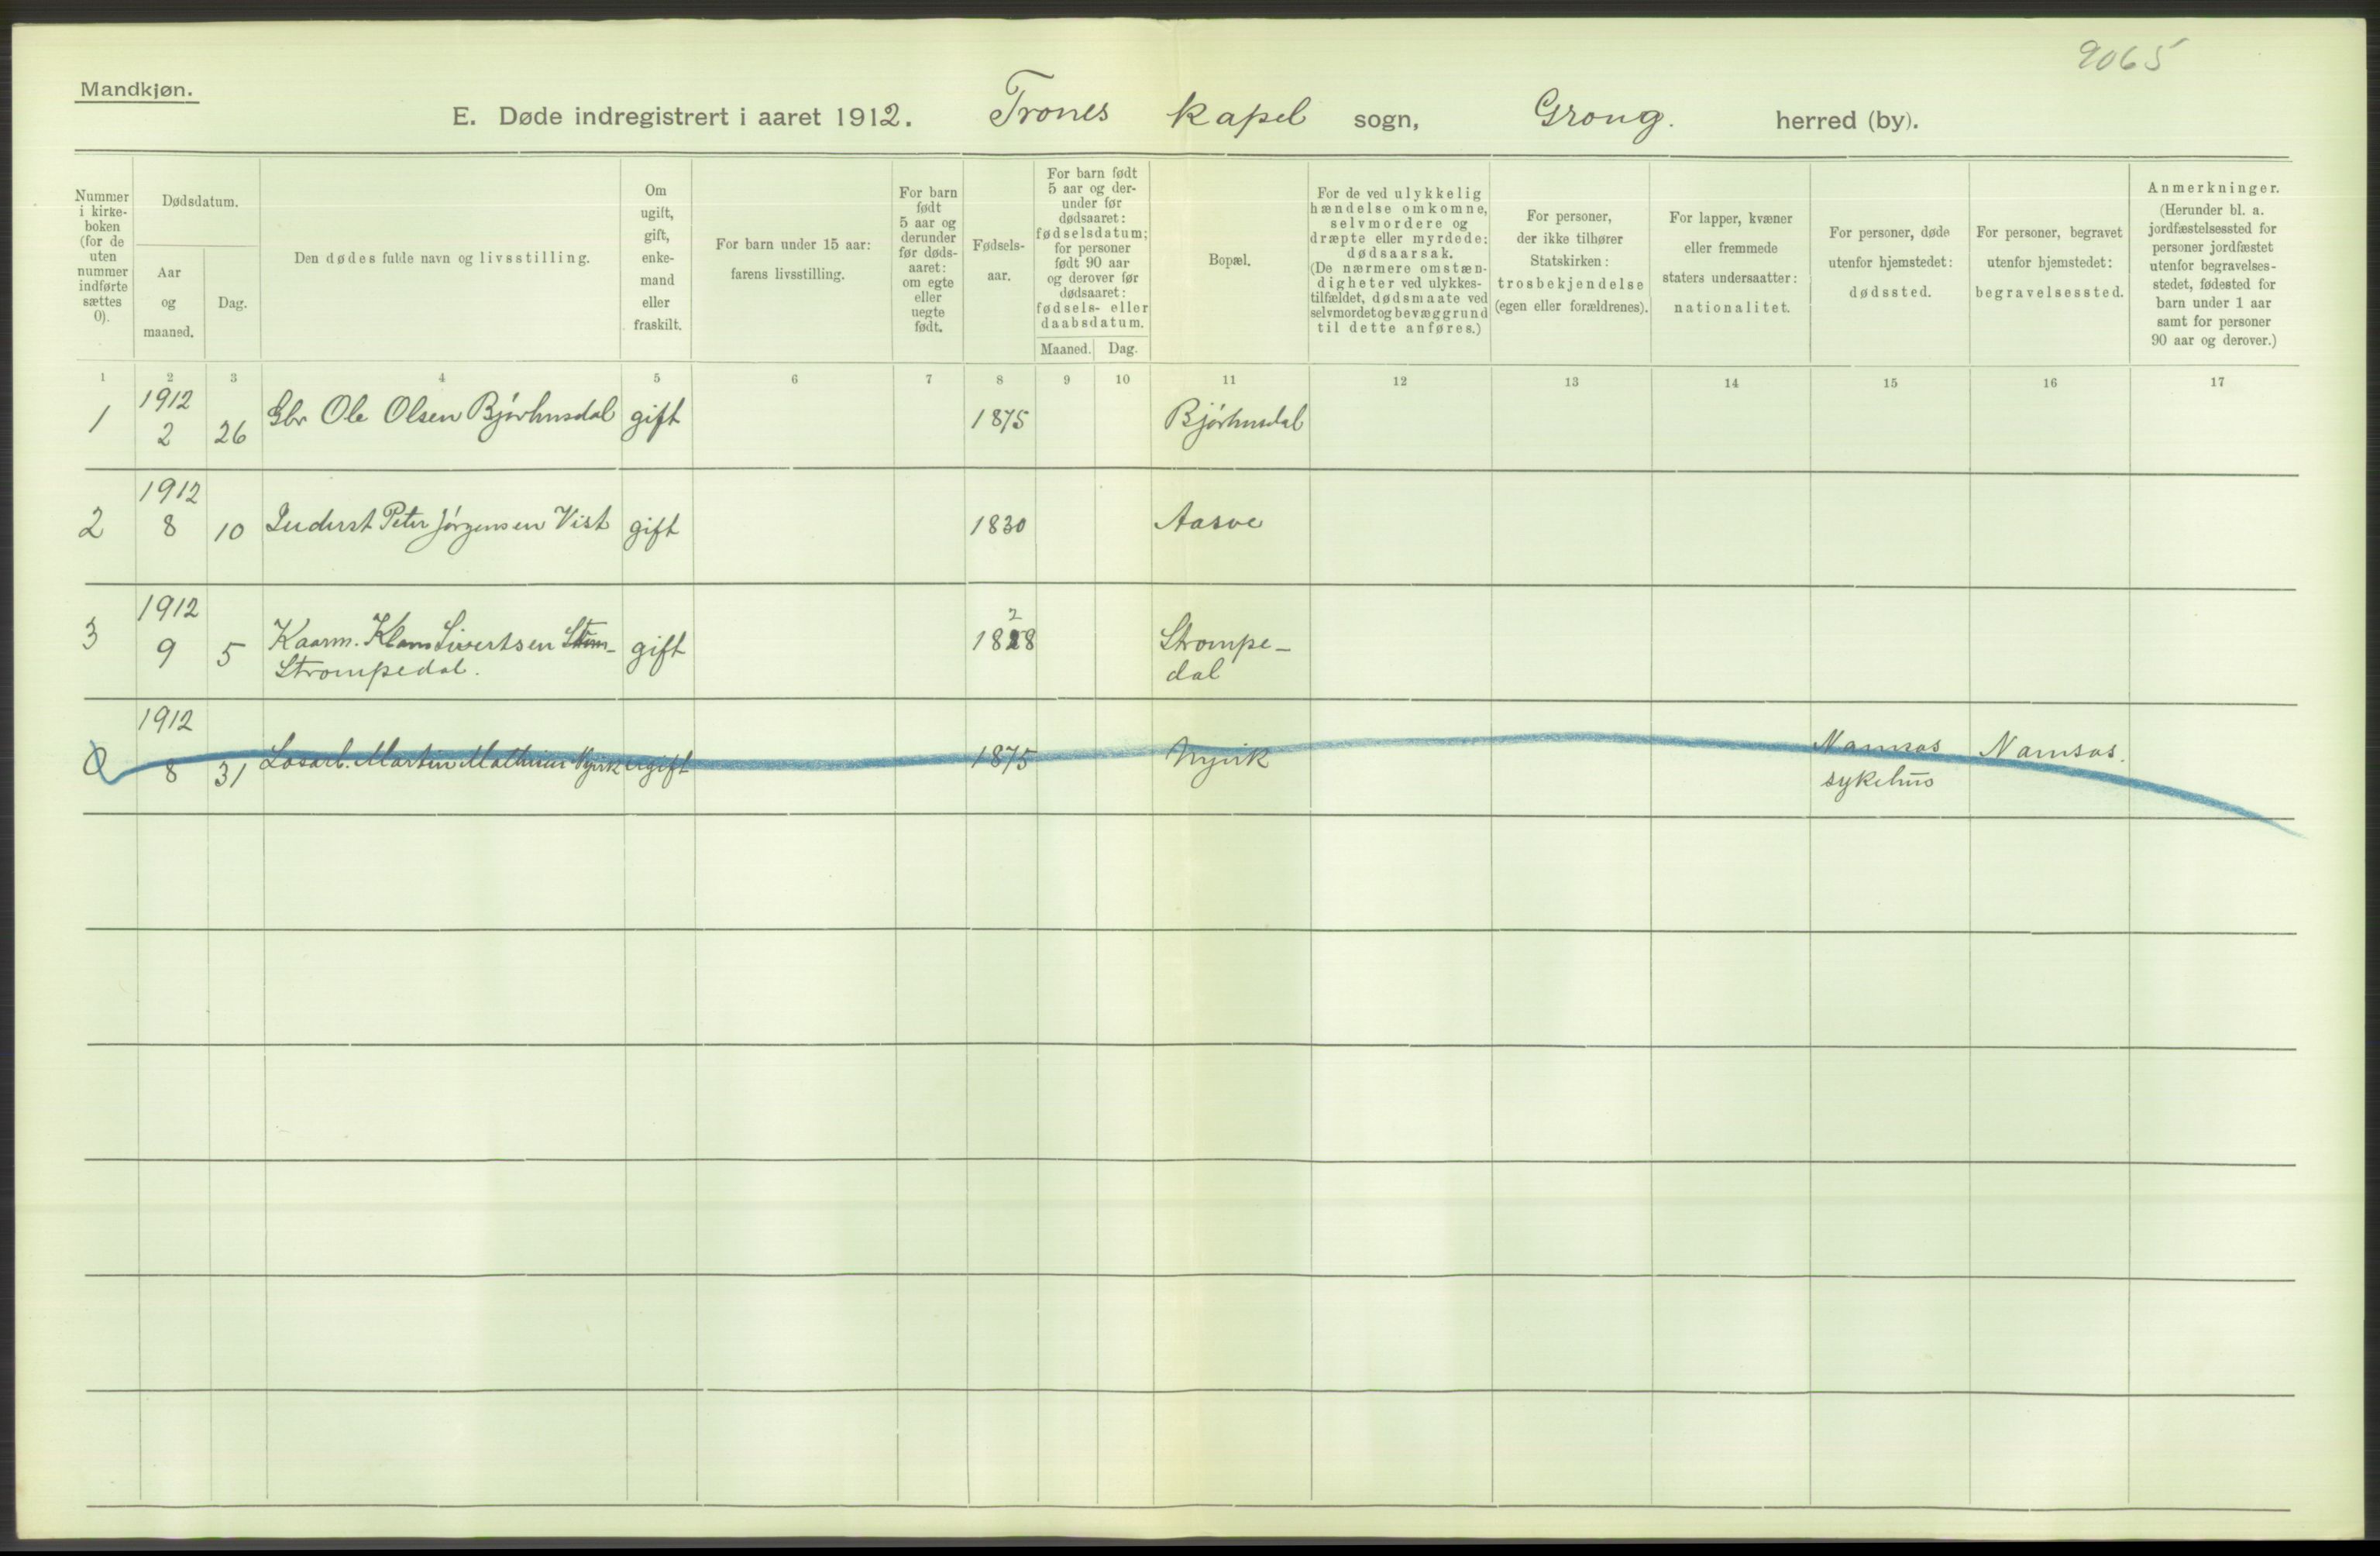 9065
Mandkjøn.
E. Døde indregistrert i aaret 1912. Trones kapel sogn, Grong. herred (by).
Nummer
i kirke-
boken
(for de
uten
nummer
indførte
sættes
0).
Dødsdatum.
Aar
og
maaned.
Dag.
Den dødes fulde navn og livsstilling.
Om
ugift,
gift,
enke-
mand
eller
fraskilt.
For barn under 15 aar:
farens livsstilling.
For barn
født
5 aar og
derunder
før døds-
aaret:
om egte
eller
uegte
født.
Fødsels-
aar.
For barn født
5 aar og der-
under før
dødsaaret:
fødselsdatum;
for personer
født 90 aar
og derover før
dødsaaret:
fødsels- eller
daabsdatum.
Maaned. Dag.
Bopæl.
For de ved ulykkelig
hændelse omkomne,
selvmordere og
dræpte eller myrdede:
dødsaarsak.
(De nærmere omstæn-
digheter ved ulykkes-
tilfældet, dødsmaate ved
selvmordet og bevæggrund
til dette anføres.)
For personer,
der ikke tilhører
Statskirken:
trosbekjendelse
(egen eller forældrenes).
For lapper, kvæner
eller fremmede
staters undersaatter:
nationalitet.
For personer, døde
utenfor hjemstedet:
dødssted.
For personer, begravet
utenfor hjemstedet:
begravelsessted.
Anmerkninger.
(Herunder bl. a.
jordfæstelsessted for
personer jordfæstet
utenfor begravelses-
stedet, fødested for
barn under 1 aar
samt for personer
90 aar og derover.)
1 2 3 4 5 6 7 8 9 10 11 12 13 14 15 16 17
1912
1 2 26 Gbr Ole Olsen Bjørhusdal gift 1875 Bjørhusdal
1912
2 8 10 Inderst Peter Jørgensen Vist gift 1830 Aasve
1912 2
3 9 5 Kaarm. Klaus Sivertsen gift 1828 Strompe-
Strompedal. dal
1912
0 8 31 Løsarb. Martin Mathisen Nyvik ugift 1875 Nyvik Namsos Namsos.
sykehus